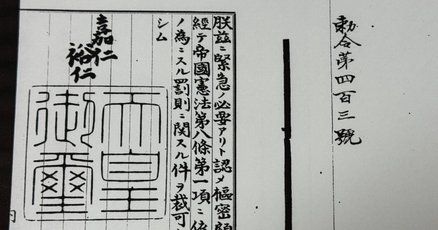 勅令第四百三號
朕茲ニ緊急ノ必要アリト認メ樞密顧
經テ帝國憲法第八條第一項ニ依
ノ為ニスル罰則ニ関スル件ヲ裁可シ
シム
嘉仁
裕仁
天皇
御璽
内